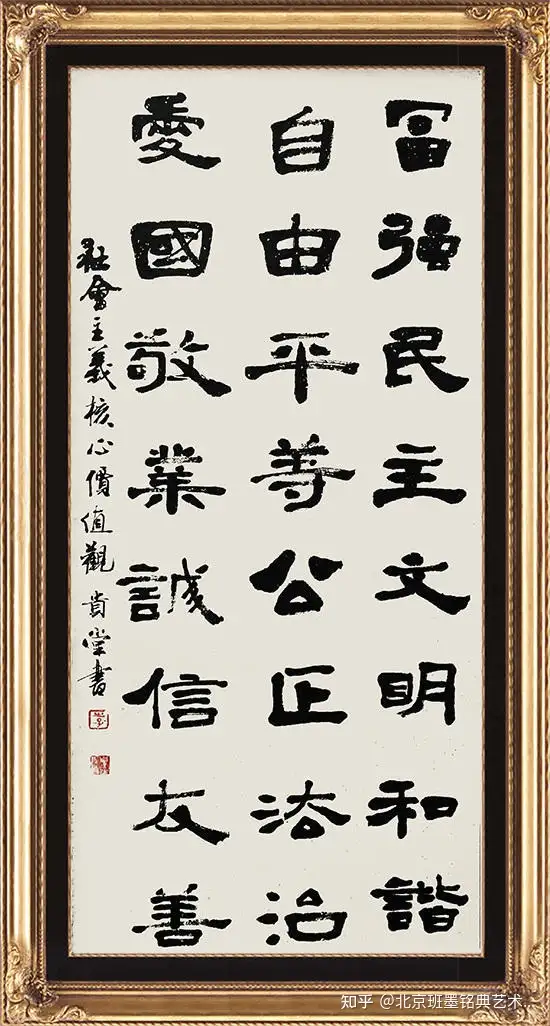 冨强民主文明和諧
自由平等公正法治
愛國敬業誠信友善
社會主義核心價值觀 貴堂書
知乎 @北京班墨铭典艺术...